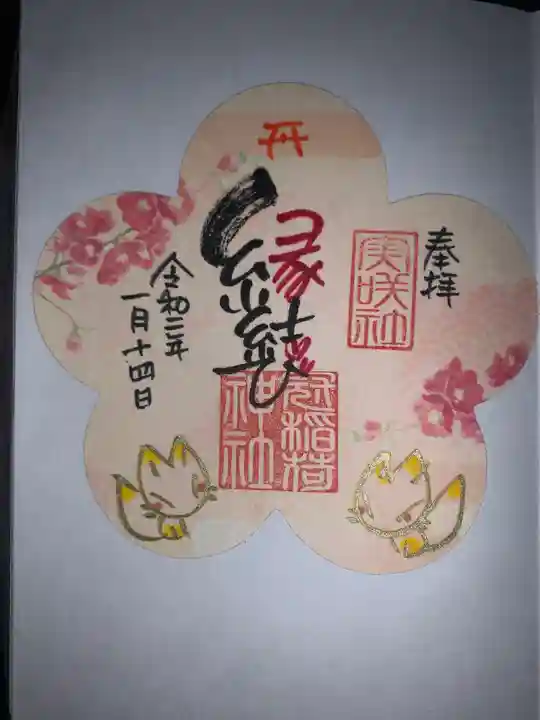 奉拝
実咲社
縁結び
冠稲荷
神社
令和二年
一月十四日